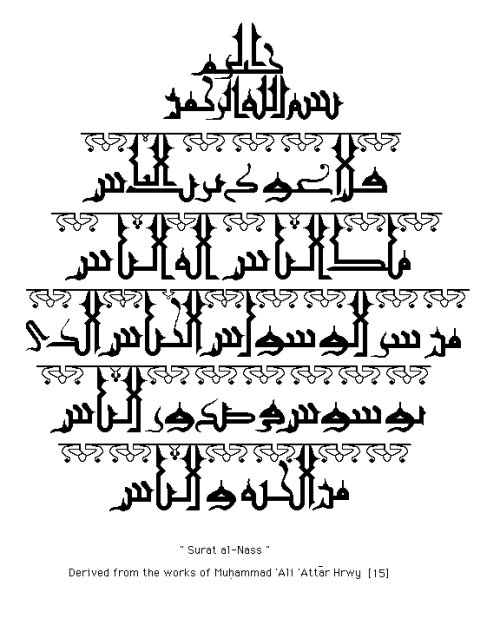 بسم الله الرحمن
الرحيم
قل اعوذ برب الناس
ملك الناس اله الناس
من شر الوسواس الخناس الذى
يوسوس فى صدور الناس
من الجنه و الناس
" Surat al-Nass "
Derived from the works of Muḥammad 'Ali 'Attār Hrwy [15]